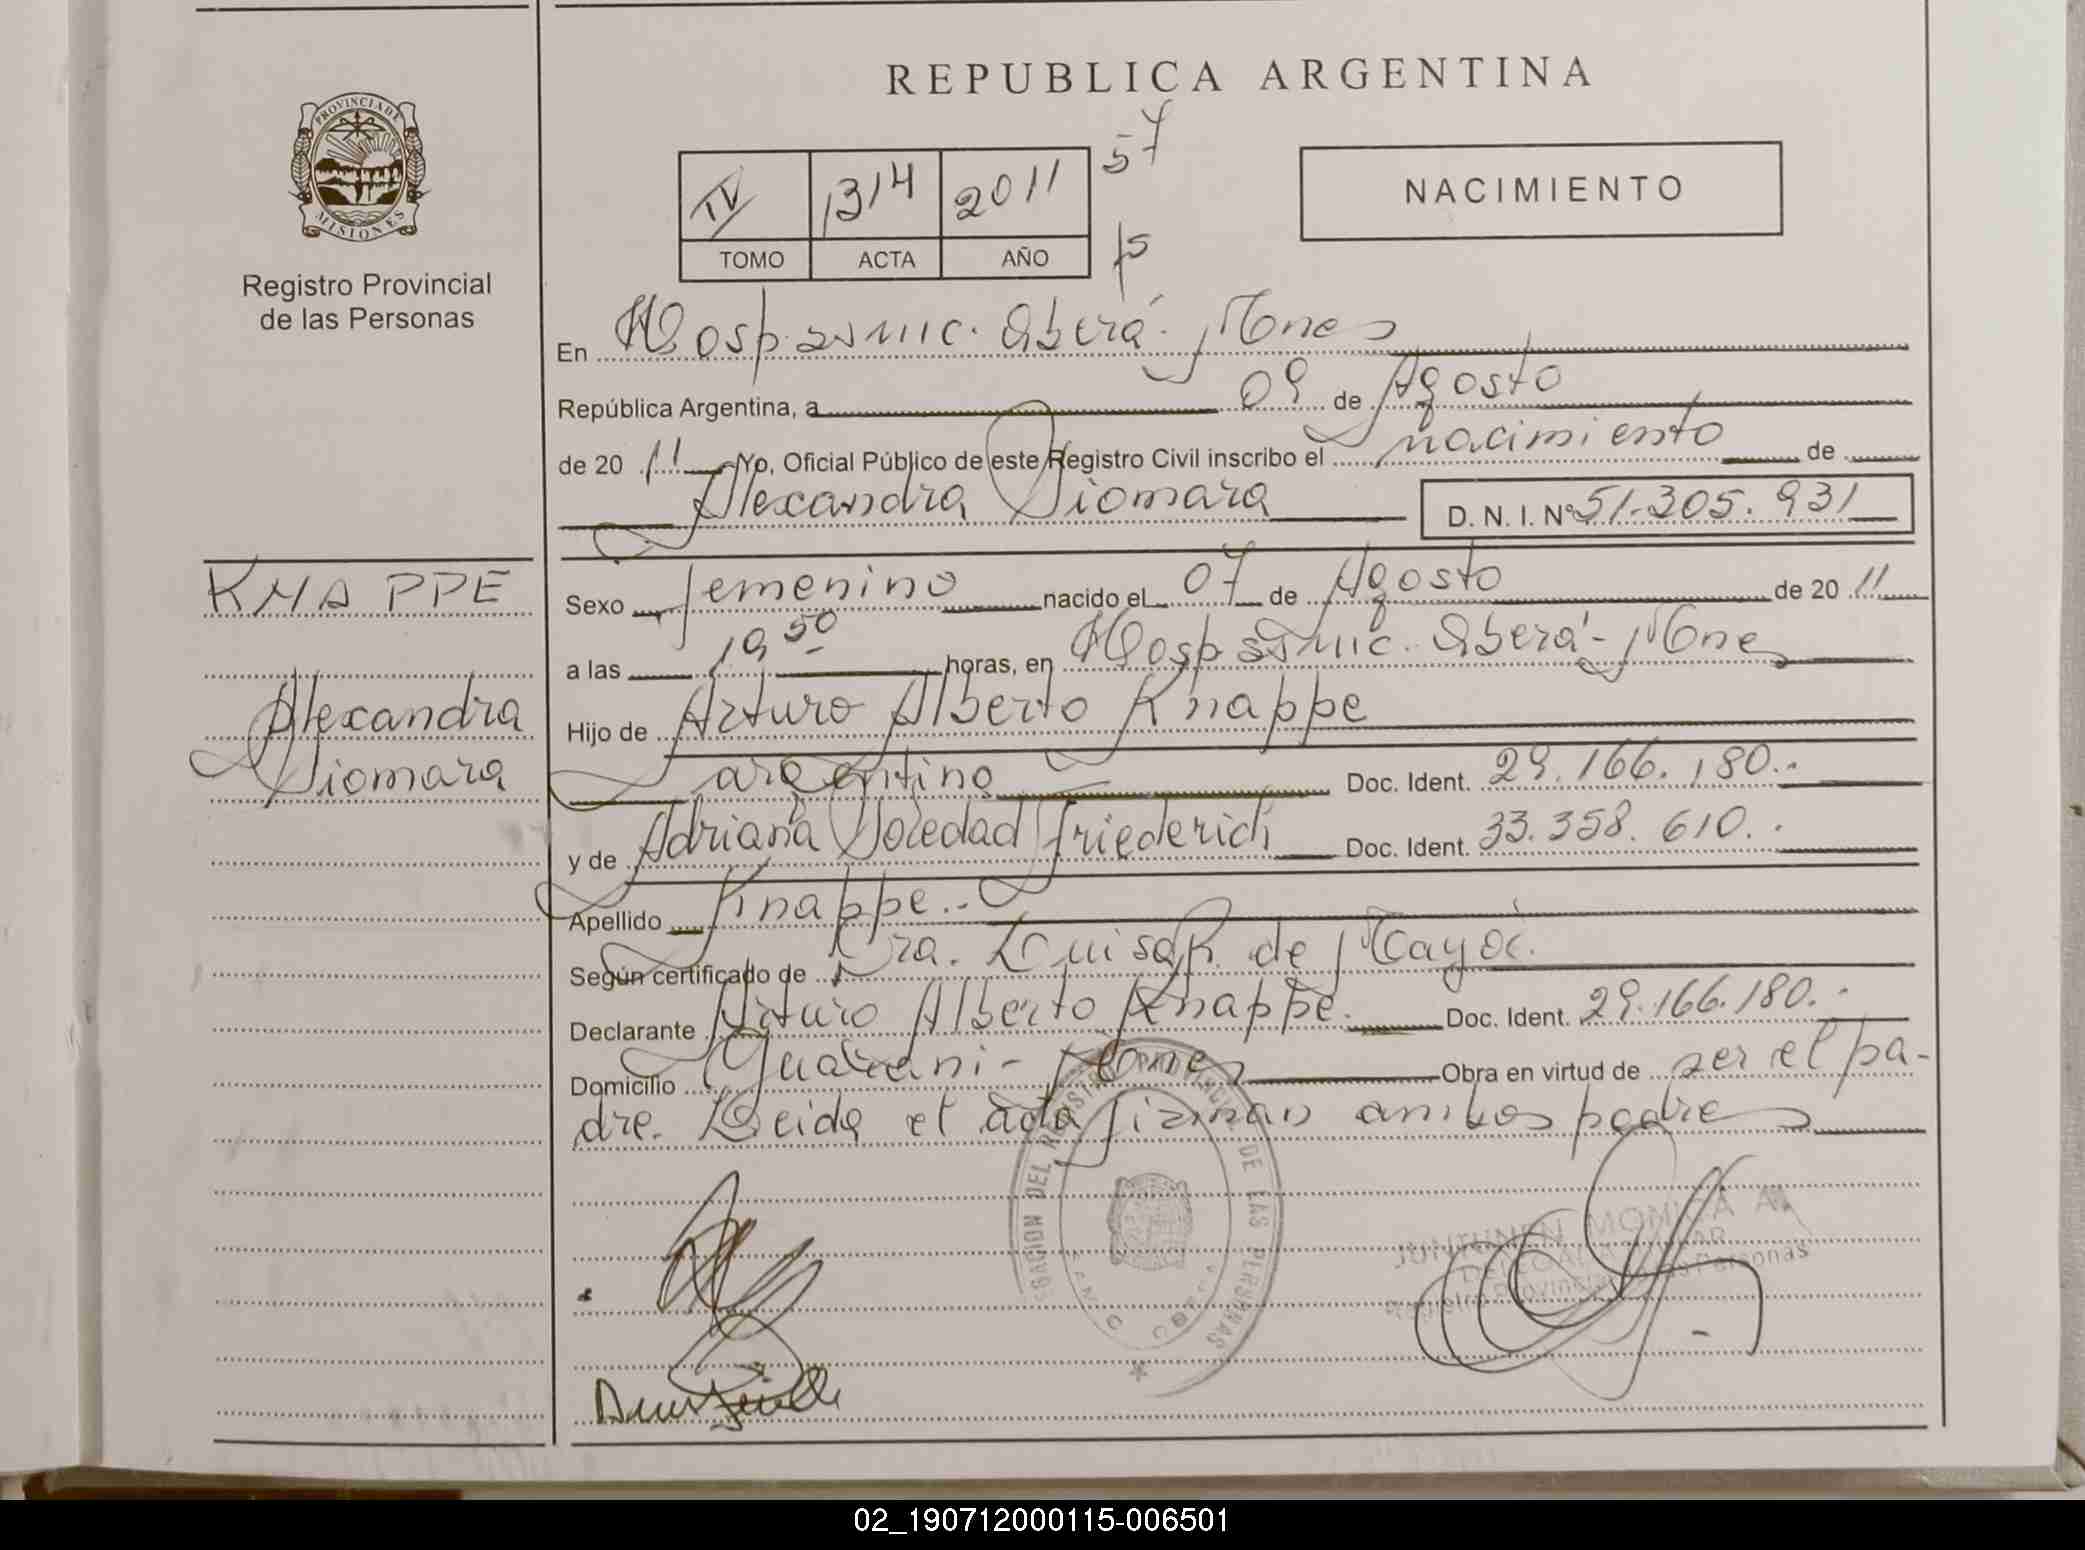 REPUBLICA ARGENTINA
PROVINCIA DE MISIONES
Registro Provincial
de las Personas
IV 1314 2011 57
TOMO ACTA AÑO
NACIMIENTO
En Hosp. Oberá. Mnes
República Argentina, a 09 de Agosto
de 20 11 Yo, Oficial Público de este Registro Civil inscribo el nacimiento de
Alexandra Siomara D. N. I. Nº 51.305.931
KNAPPE
Alexandra
Siomara
Sexo femenino nacido el 07 de Agosto de 20 11
a las 19 50 horas, en Hosp Oberá - Mnes
Hijo de Arturo Alberto Knappe
argentino Doc. Ident. 29.166.180..
y de Adriana Soledad Friederich Doc. Ident. 33.358.610..
Apellido Knappe.-
Según certificado de Dra. Luisa R. de
Declarante Arturo Alberto Knappe. Doc. Ident. 29.166.180..
Domicilio Guarani - Mnes Obra en virtud de ser el pa-
dre. Leida el acta firman ambos padres
DELEGACION DEL REGISTRO PROVINCIAL DE LAS PERSONAS
JUNTUNEN MONICA A.
Registro Provincial de las Personas
02_190712000115-006501